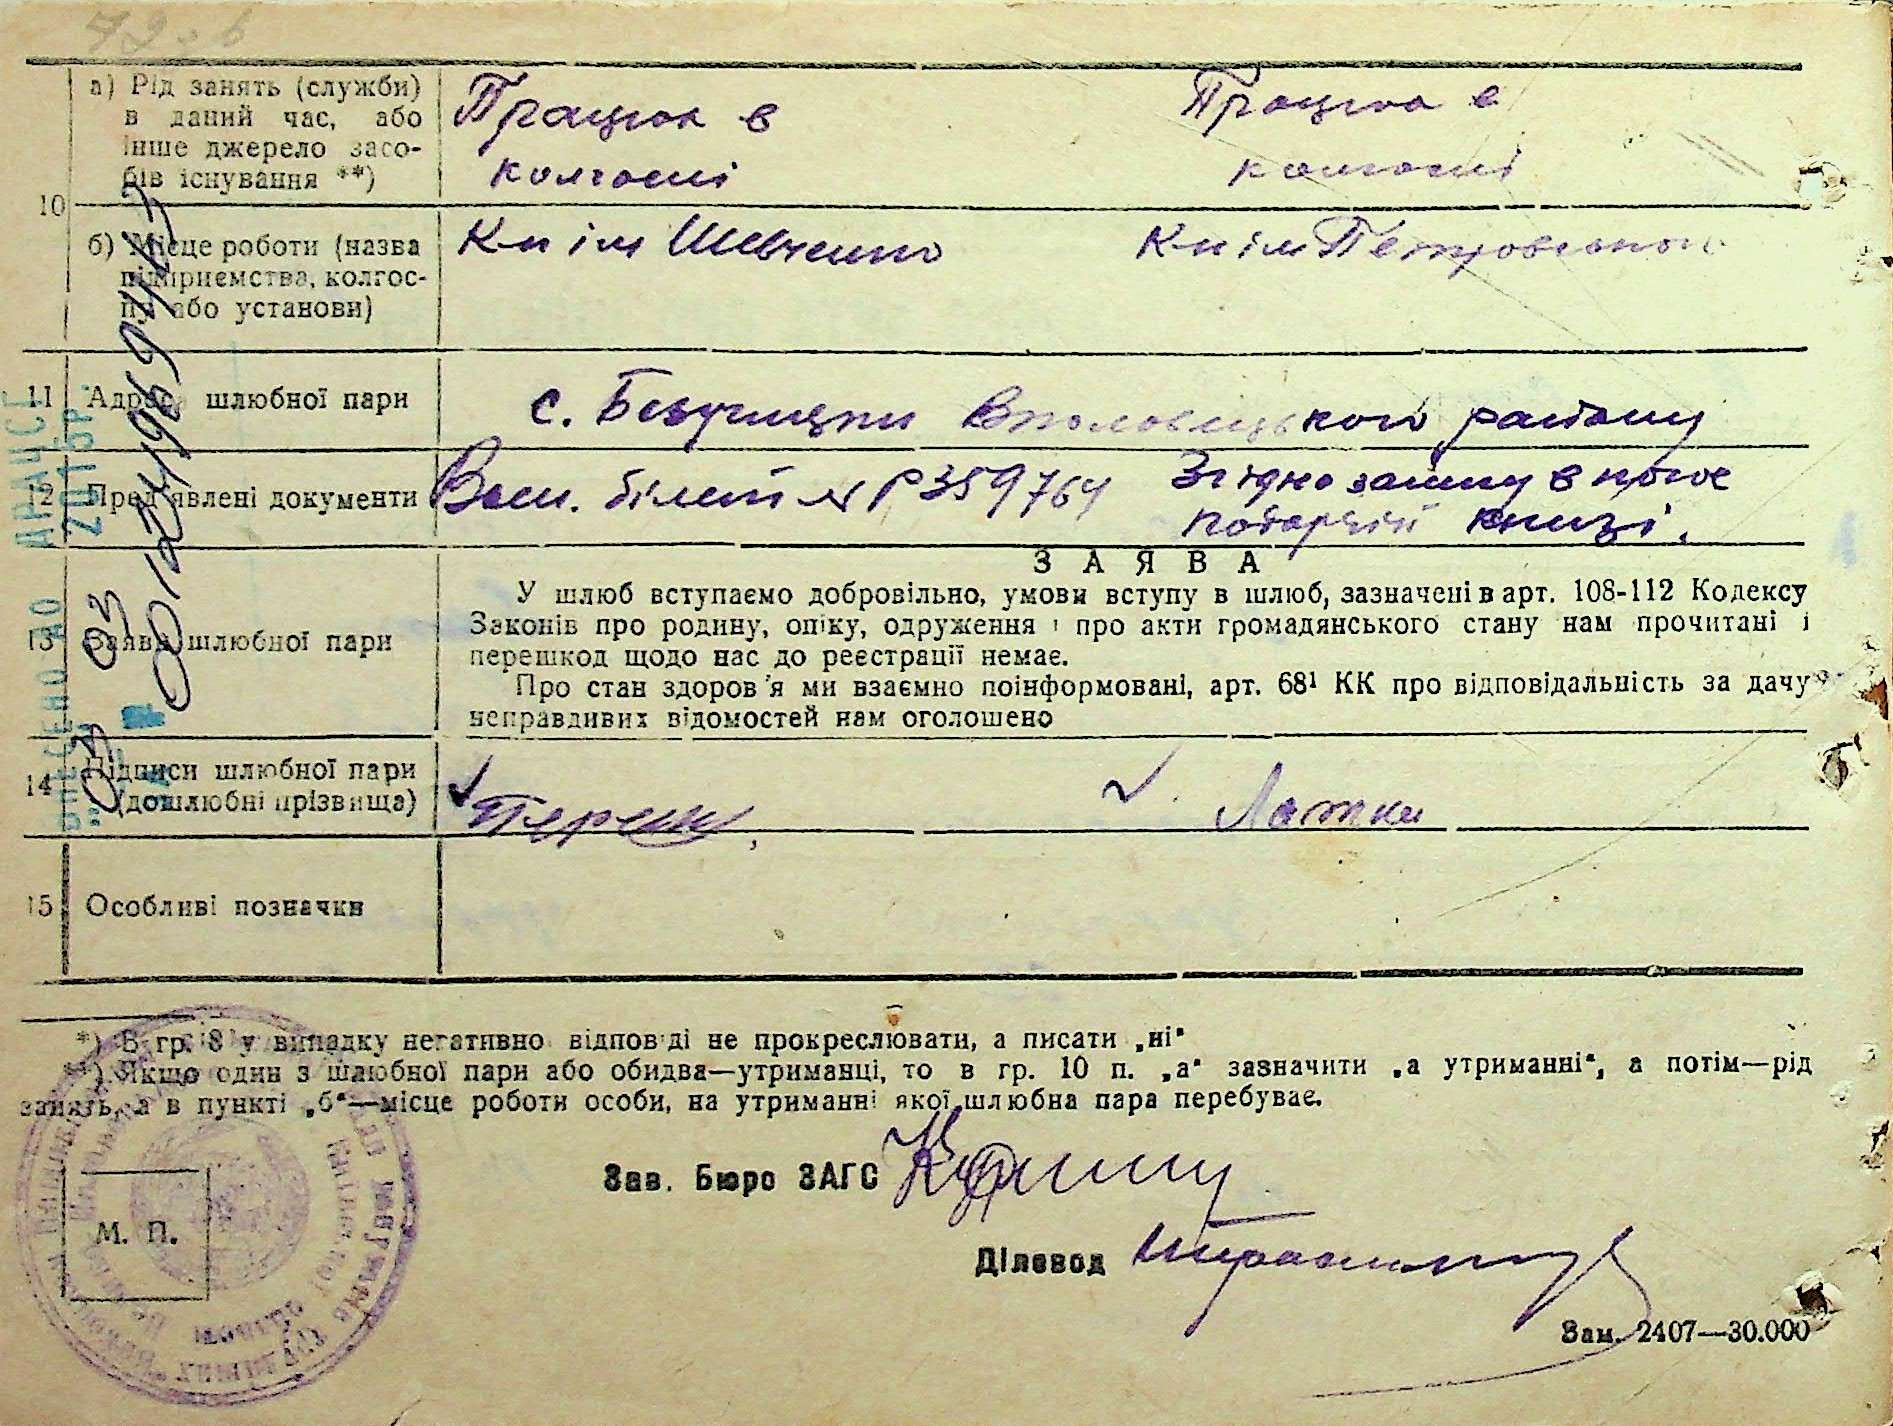 10
а) Рід занять (служби)
в даний час, або
інше джерело засо-
бів існування **)
Працюв в
колгоспі
Працюв в
колгоспі
б) Місце роботи (назва
підприємства, колгос-
пу або установи)
К-п ім Шевченко
К-п ім Петровського
11 Адреса шлюбної пари
с. району
12 Пред'явлені документи
Воєн. білет № Р 359764
Згідно запису в погос
подарчій книзі.
13 Заява шлюбної пари
ЗАЯВА
У шлюб вступаємо добровільно, умови вступу в шлюб, зазначені в арт. 108-112 Кодексу
Законів про родину, опіку, одруження і про акти громадянського стану нам прочитані і
перешкод щодо нас до реєстрації немає.
Про стан здоров'я ми взаємно поінформовані, арт. 68¹ КК про відповідальність за дачу
неправдивих відомостей нам оголошено
14 Підписи шлюбної пари
(дошлюбні прізвища)
15 Особливі позначки
*) В гр. 8 у випадку негативно відповіді не прокреслювати, а писати „ні“
**) Якщо один з шлюбної пари або обидва—утриманці, то в гр. 10 п. „а“ зазначити „а утриманні“, а потім—рід
занять, а в пункті „б“—місце роботи особи, на утриманні якої шлюбна пара перебуває.
Зав. Бюро ЗАГС
Діловод
М. П.
Зам. 2407—30.000
ВНЕСЕНО ДО ДРАЦСГ
2015р.
00124969413